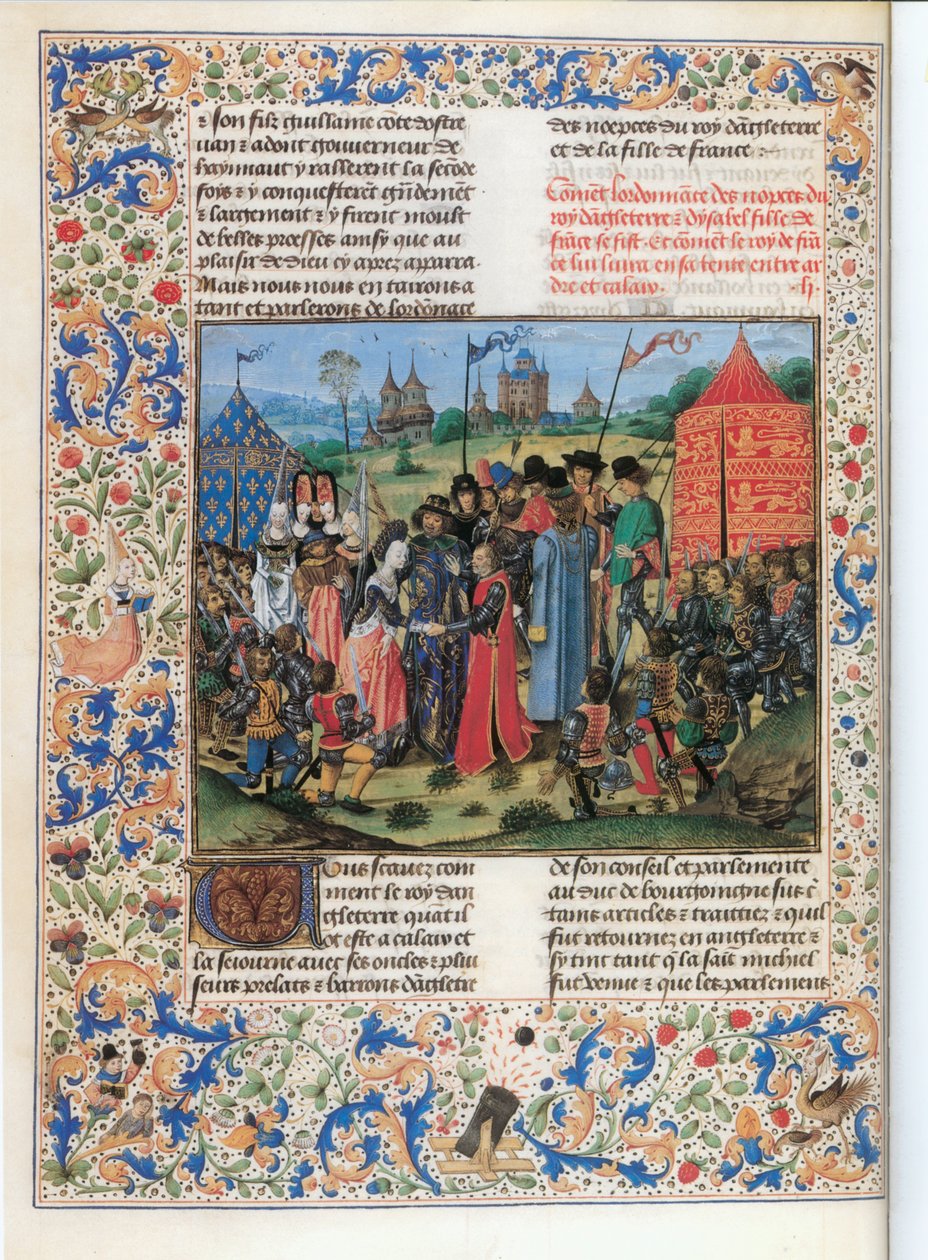 ⁊ son filz guillame côte dostre
uan ⁊ adont gouuerneur de
haynnaut y rasserent la secôde
foys ⁊ y conquesterêt grâdemêt
⁊ largement ⁊ y firent moult
de belles proesses ainsy que au
plaisir de dieu cy aprez apparra.
Mais nous nous en tairons a
tant et parlerons de lordônâce
des noepces du roy dâgleterre
et de la fille de france
Cômêt lordonnâce des nopces du
roy dâgleterre ⁊ dysabel fille de
frâce se fist. Et cômêt le roy de frâ
ce lui liura en sa tente entre ar
dre et calaix.
Uous scauez com
ment le roy dan
gleterre quât il
ot este a calaix et
la seiourne auec ses oncles ⁊ plui
seurs prelats ⁊ barrons dâgletre
de son conseil et parlemente
au duc de bourgoingne sus c̄
tains articles ⁊ traittiez ⁊ quil
fut retournez en angleterre ⁊
sy tint tant q̄ la saît michiel
fut venue ⁊ que les parlemens